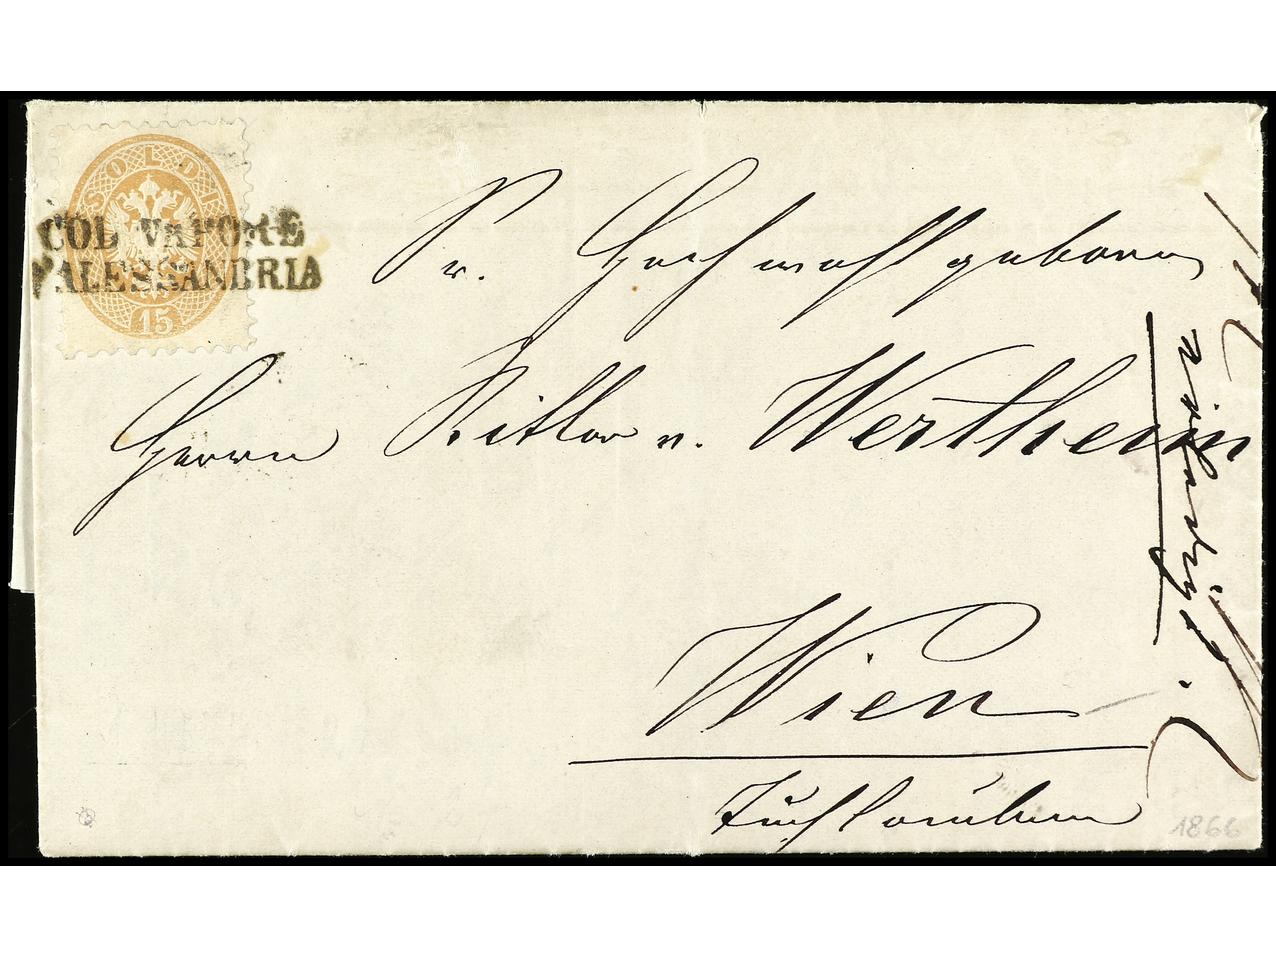 SOLDI
COL VAPORE
D'ALESSANDRIA
15
Sr. Hochwohlgeboren
Herrn Ritter v. Wertheim
Wien
Tuchlauben
1866